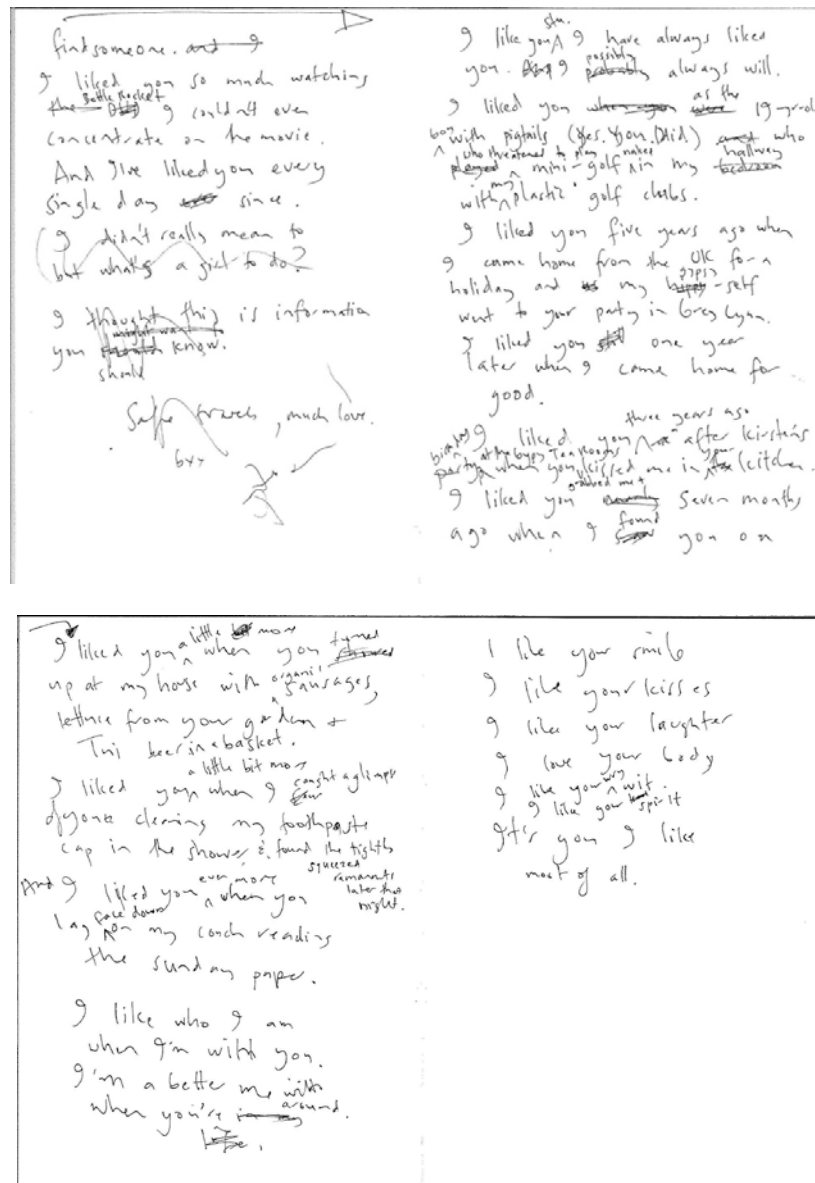 find someone. and I
I liked you so much watching
the Bottle Rocket I couldn't even
concentrate on the movie.
And I've liked you every
single day since.
I didn't really mean to
but what's a girl to do?
I thought this is information
you should might want to know.
should
Safe travels, much love.
bxx
I like you stu. I have always liked
you. And I probably possibly always will.
I liked you when you were as the 19-yr-old
boy with pigtails (Yes. You. Did.) and who
played who threatened to play mini-golf naked in my bedroom hallway
with my plastic golf clubs.
I liked you five years ago when
I came home from the UK for a
holiday and my hippy gypsy-self
went to your party in Grey Lynn.
I liked you still one year
later when I came home for
good.
I liked you three years ago after Kirsten's
birthday party at the Gypsy Tea Rooms when you grabbed me + kissed me in your kitchen.
I liked you seven months
ago when I saw found you on
I liked you a little bit more when you turned
up at my house with organic sausages,
lettuce from your garden +
Tui beer in a basket.
I liked you a little bit more when I saw caught a glimpse
of you cleaning my toothpaste
cap in the shower & found the tightly
squeezed remannts later that night.
And I liked you even more when you
lay face down on my couch reading
the sunday paper.
I like who I am
when I'm with you.
I'm a better me with
when you're around.
I like your smile
I like your kisses
I like your laughter
I love your body
I like your wry wit.
I like your spirit
It's you I like
most of all.